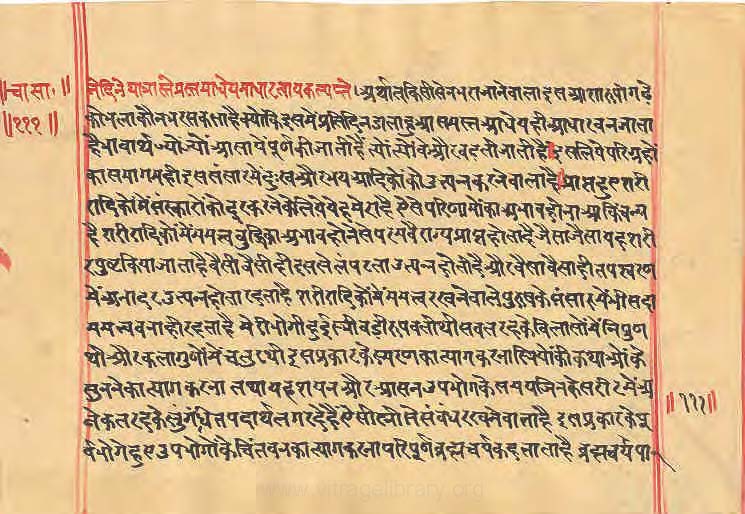 ॥चा सा॰॥
॥१११॥
दिने दिने यात्रास्ते प्रत्तमाधेयमाधारत्वाय कल्पते। अर्थात् किसी से न भरा जाने वाला इस आशारूपी गढ़े
को भला कौन भर सकता है क्योंकि इसमें प्रतिदिन डाला हुआ समस्त आधेय ही आधार बन जाता
है भावार्थ ज्यों ज्यों आसायें पूर्ण की जाती हैं त्यों त्यों वे और बढ़ती जाती हैं इसलिये परिग्रहों
का समागम ही इस संसार में दुःख और भय आदिकों को उत्पन्न करने वाला है प्राप्त हुए शरी
रादिकों में संस्कारों को दूर करने के लिये ये मेरा है ऐसे परिणामों का अभाव होना आकिंचन्य
है शरीरादिकों में ममत्व बुद्धि का अभाव होने से परम वैराग्य प्राप्त होता है जैसा जैसा यह शरी
र पुष्ट किया जाता है वैसी वैसी ही इसमें लंपटता उत्पन्न होती है और वैसा वैसा ही तपश्चरण
में अनादर उत्पन्न होता रहता है शरीरादिकों में ममत्व रखने वाले पुरुष के संसार में भी सदा
ममत्व बना ही रहता है मेरी भोगी हुई स्त्री बड़ी रूपवती थी सब तरह के विलासों में निपुण
थी और कला गुणों में चतुर थी इस प्रकार के स्मरण का त्याग करना स्त्रियों की कथाओं के
सुनने का त्याग करना तथा यह शयन और आसन उपभोग के समय जिनके सरीर में अ
नेक तरह के सुगंधित पदार्थ लग रहे हैं ऐसी स्त्री से संबंध रखने वाला है इस प्रकार के पू
र्व भोगे हुए उपभोगों के चिंतवन का त्याग करना परिपूर्ण ब्रह्मचर्य कहलाता है ब्रह्मचर्य पा
॥१११॥
www.vitragelibrary.org